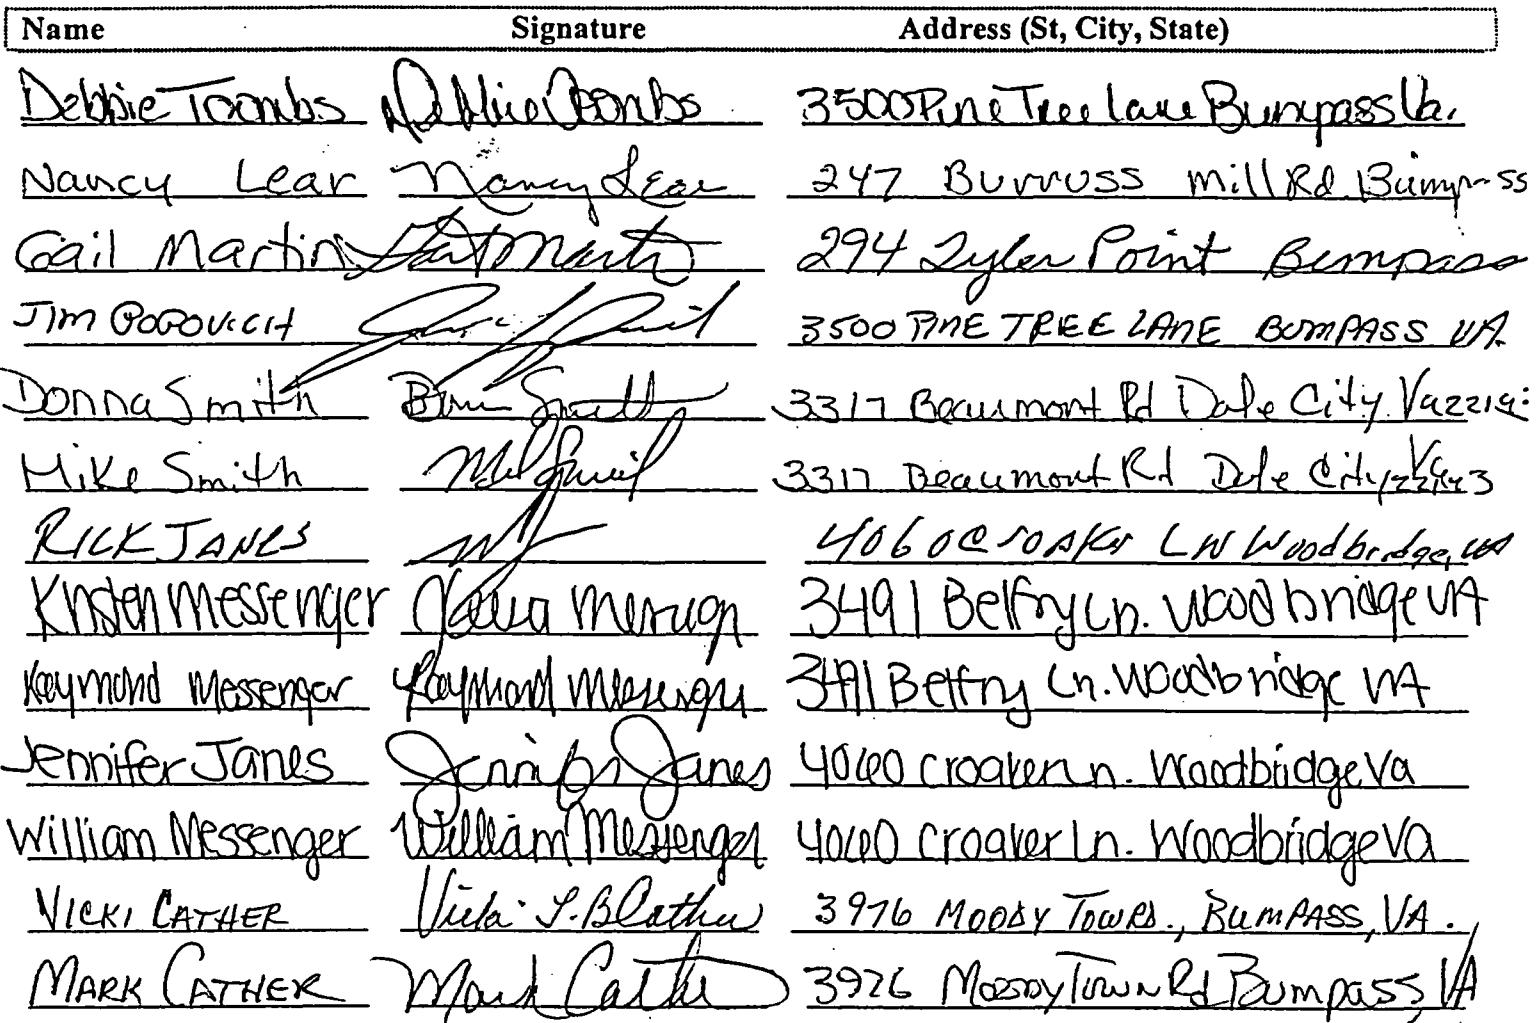 Name Signature Address (St, City, State)
Debbie Toombs Debbie Toombs 3500 Pine Tree Lane Bumpass Va.
Nancy Lear Nancy Lear 247 Burruss Mill Rd Bumpass
Gail Martin Gail Martin 294 Tyler Point Bumpass
Jim Popovich 3500 PINE TREE LANE BUMPASS VA.
Donna Smith Smith 3317 Beaumont Rd Dale City Va
Mike Smith 3317 Beaumont Rd Dale City Va
RICK JANES 4060 CROAKER LN Woodbridge, VA
Kristen Messenger 3491 Belfry Ln. Woodbridge VA
Raymond Messenger Raymond Messenger 3491 Belfry Ln. Woodbridge VA
Jennifer Janes Jennifer Janes 4060 Croaker Ln. Woodbridge Va
William Messenger William Messenger 4060 Croaker Ln. Woodbridge Va
VICKI CATHER Vicki L. B Cather 3976 MOODY TOWN RD., BUMPASS, VA.
MARK CATHER Mark Cather 3926 Moody Town Rd Bumpass, VA